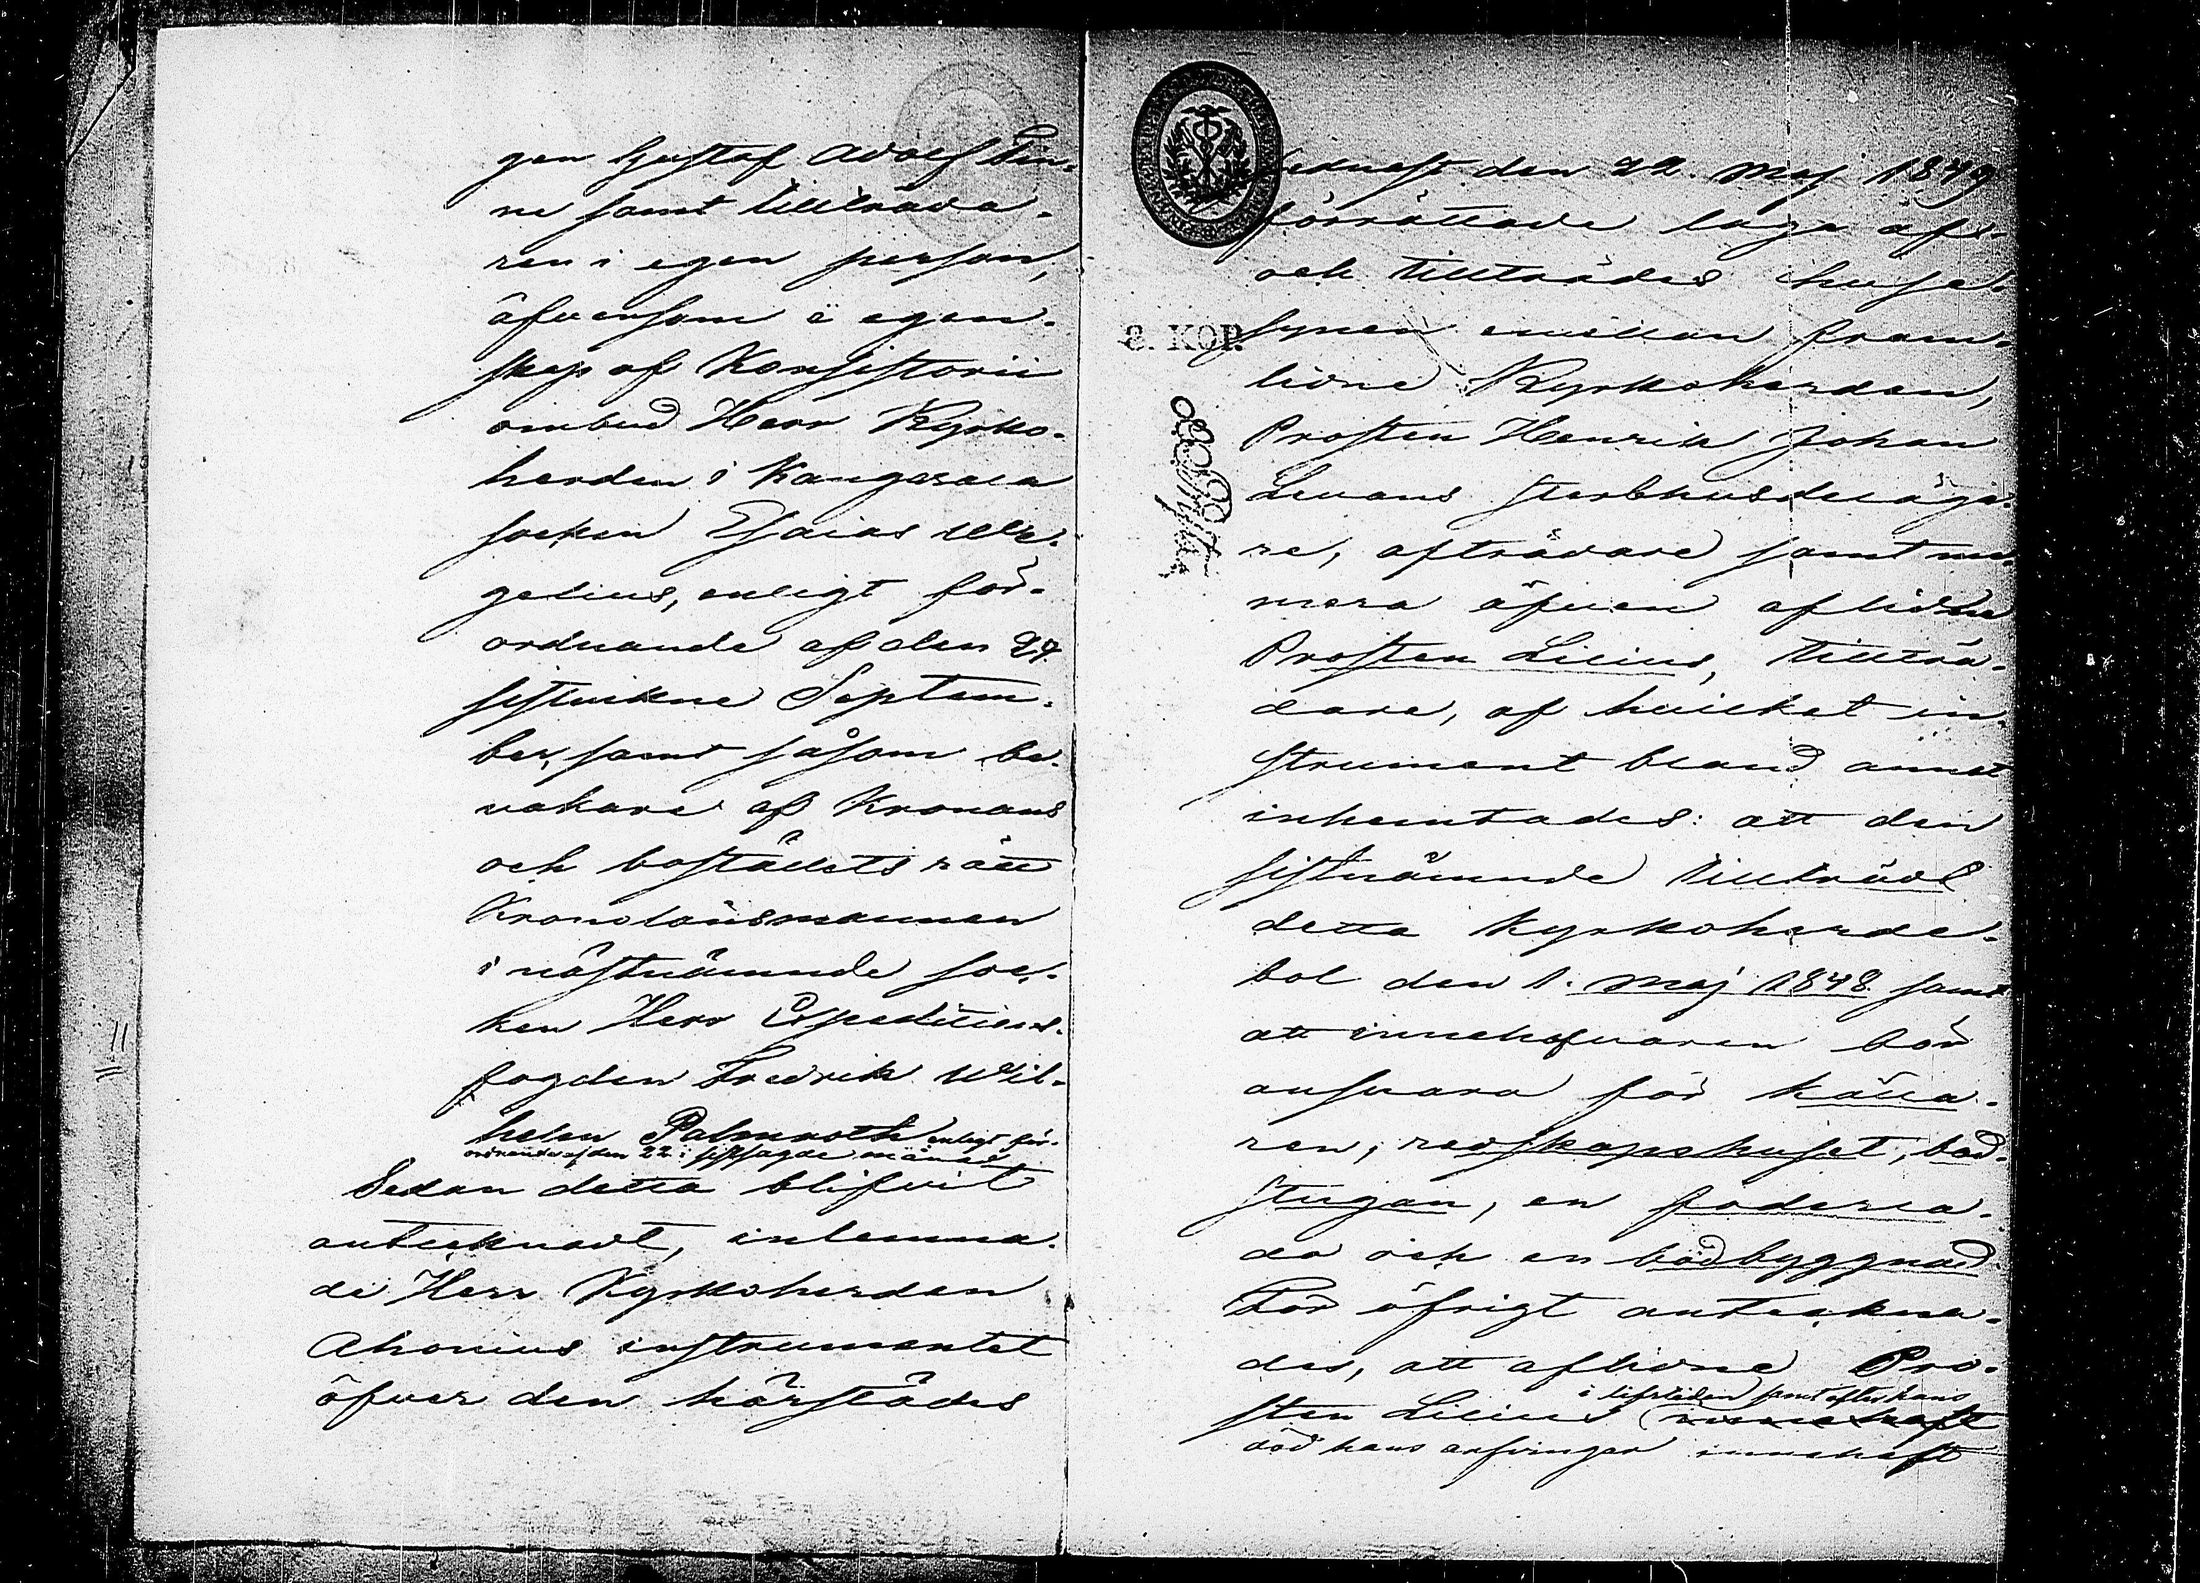 gen Gustaf Adolf Fin-
ne samt tillträda-
ren i egen person,
äfvensom i egen-
skap af Konsistorii
ombud Herr Kyrko-
herden i Kangasala
socken Esaias We-
gelius, enligt för-
ordnande af den 27
sistvikne Septem-
ber, samt såsom be-
vakare af Kronans
och boställets rätt
Kronolänsmannen
i nästnämnde soc-
ken Herr Expeditions-
fogden Fredrik Wil-
helm Palmroth enligt för-
ordnande af den 22 i sistsagde månad
Sedan detta blifvit
antecknadt, inlemna-
de Herr Kyrkoherden
Ahonius instrumentet
öfver den härstädes
11
8. KOP.
sednast den 22. Maj 1879
förrättade laga af-
och tillträdes huse-
synen emellan fram-
lidne Kyrkoherden,
Prosten Henrik Johan
Levans sterbhusdeläga-
re, afträdare samt nu-
mera äfven aflidne
Prosten Lilius, tillträ-
dare, af hvilket in-
strument bland annat
inhemtades: att den
sistnämnde tillträdt
detta Kyrkoherde-
bol den 1. Maj 1878 samt
att innehafvaren bör
ansvara för källa-
ren, redskapshuset, bad-
stugan, en foderla-
da och en bodbyggnad.
För öfrigt anteckna-
des, att aflidne Pro-
i lifstiden samt efter hans
sten Lilius innehaft
död hans arfvingar innehaft